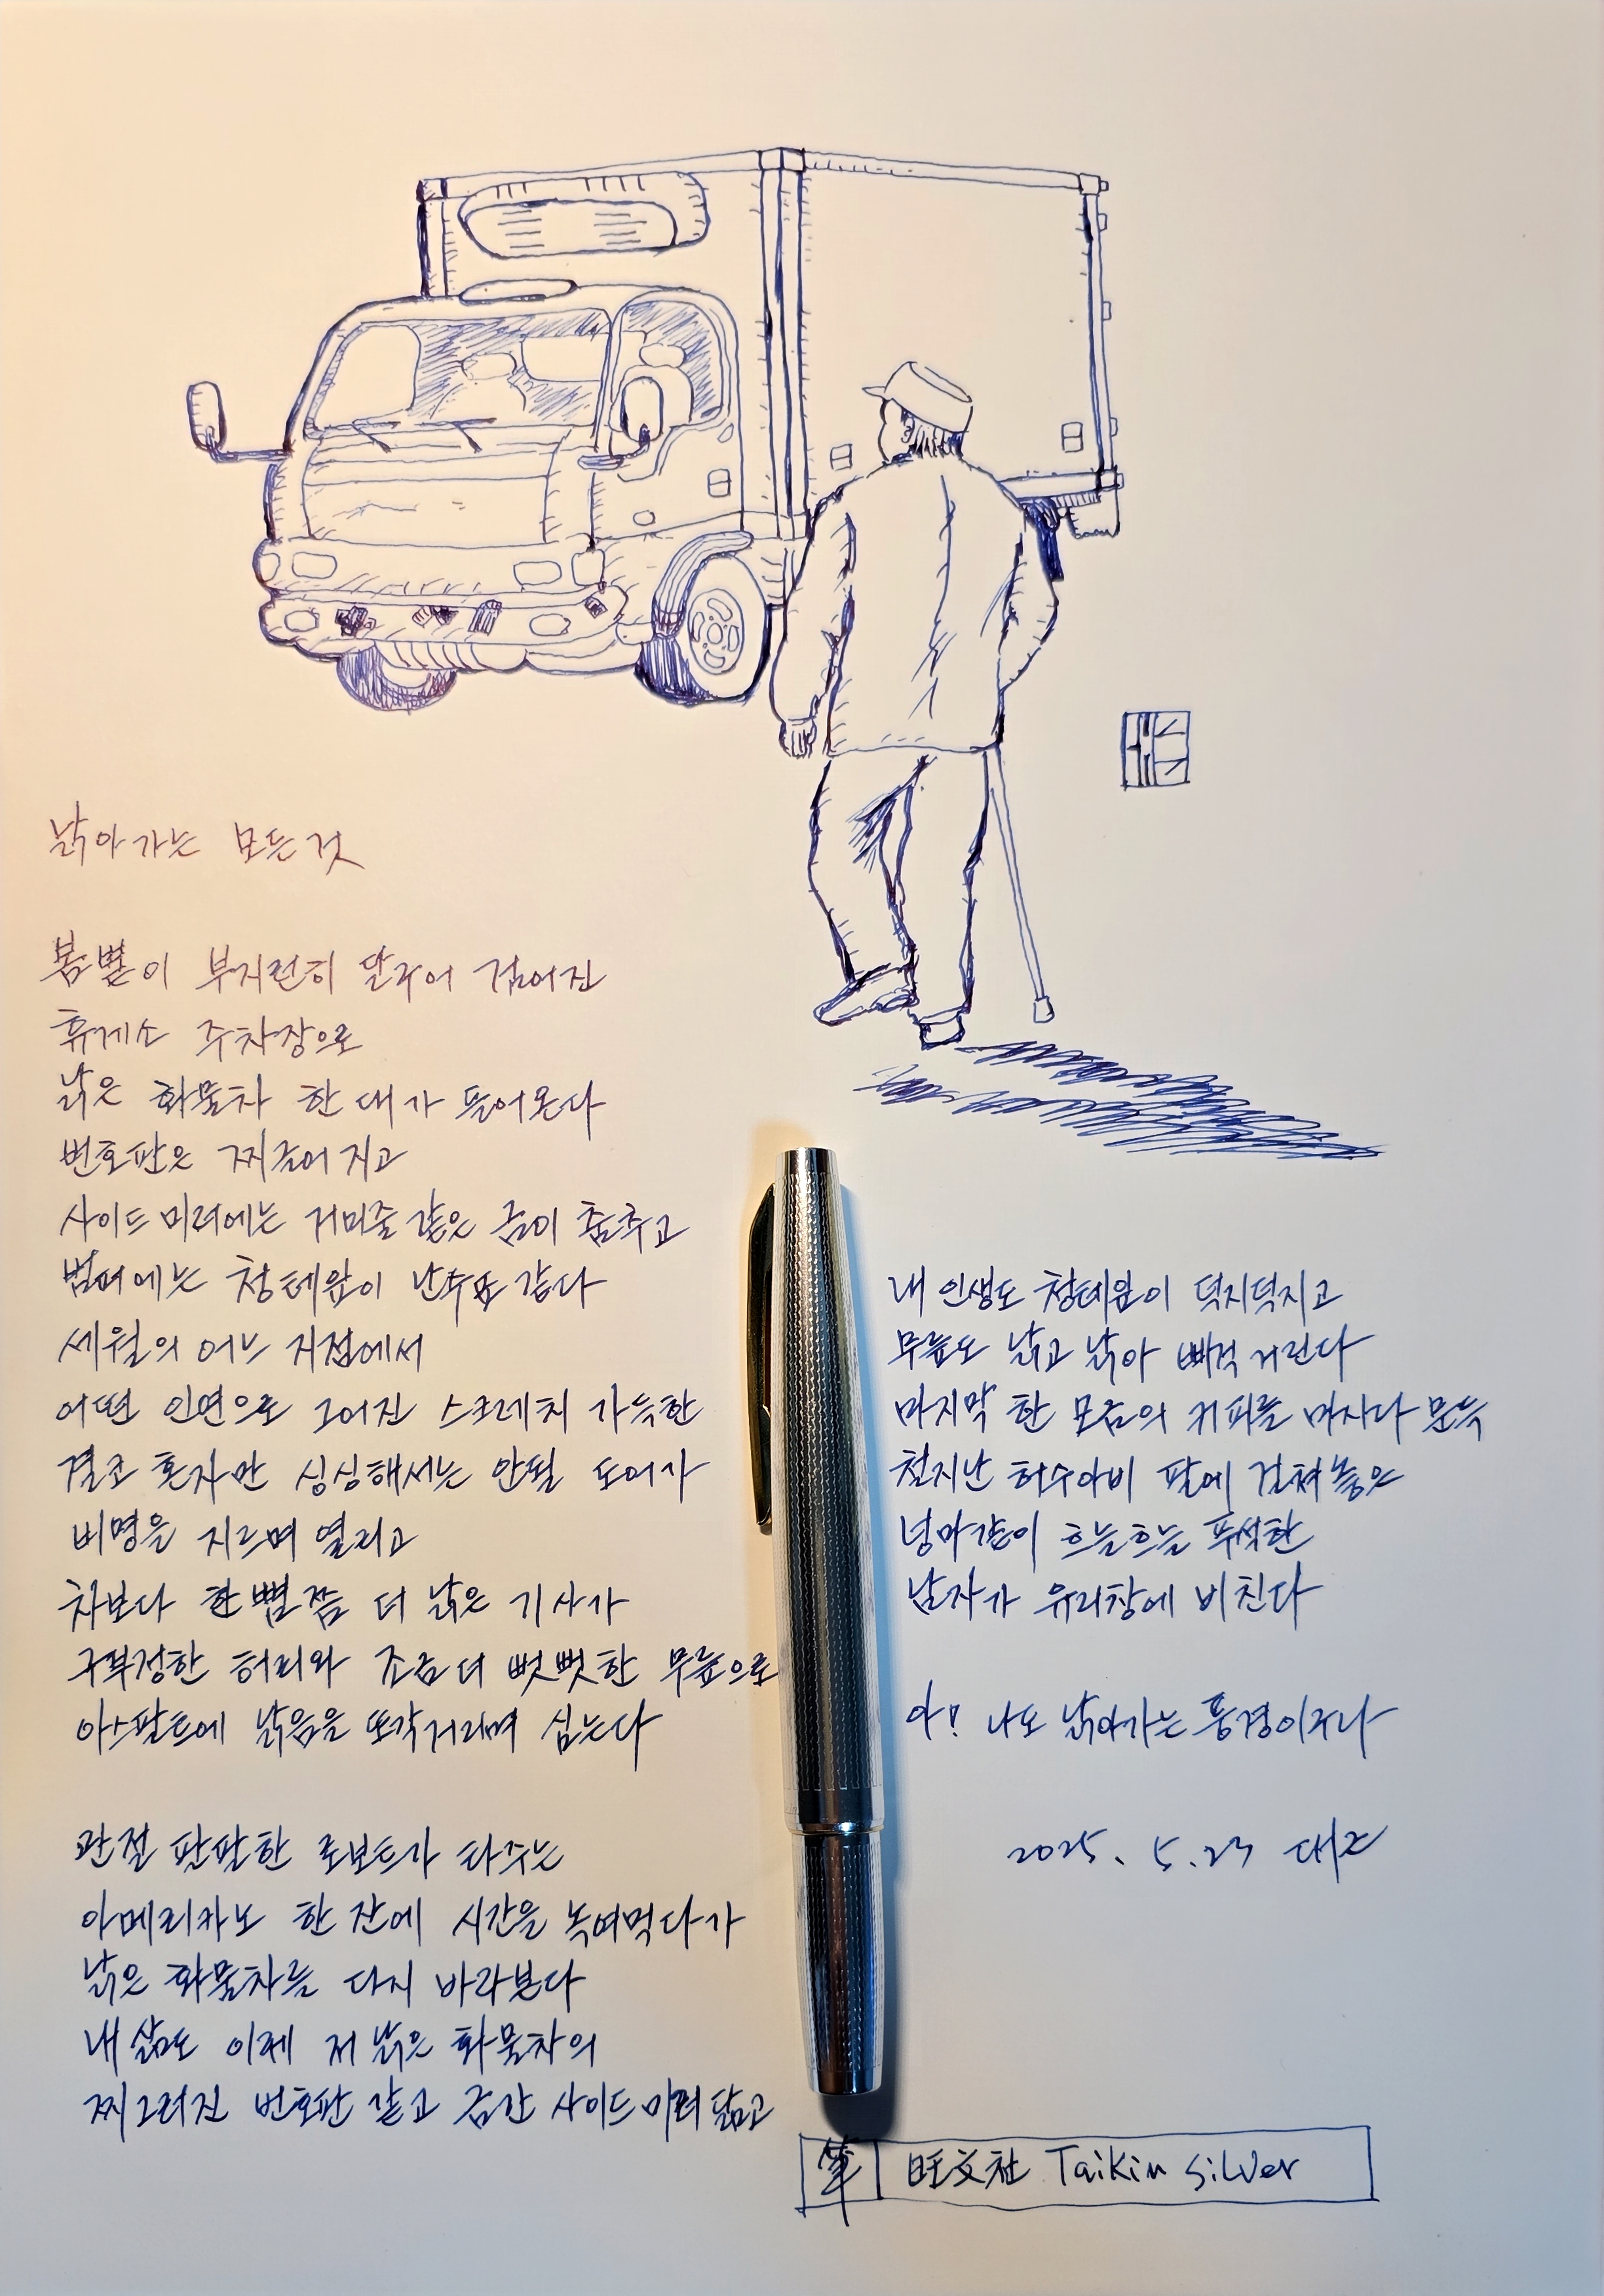 낡아가는 모든것
봄볕이 부지런히 달구어 검어진
휴게소 주차장으로
낡은 화물차 한 대가 들어온다
번호판은 찌글어지고
사이드미러에는 거미줄같은 금이 춤추고
범퍼에는 청테잎이 난수표같다
세월의 어느 지점에서
어떤 인연으로 그어진 스크레치 가득한
결코 혼자만 싱싱해서는 안될 도어가
비명을 지르며 열리고
차보다 한뼘쯤 더 낡은 기사가
구부정한 허리와 조금더 뻣뻣한 무릎으로
아스팔트에 낡음을 또각거리며 심는다
관절 팔팔한 로보트가 타주는
아메리카노 한 잔에 시간을 녹여먹다가
낡은 화물차를 다시 바라본다
내 삶도 이제 저 낡은 화물차의
찌그러진 번호판 같고 금간 사이드미러 닮고
내 인생도 청테잎이 덕지덕지고
무릎도 낡고 낡아 삐걱거린다
마지막 한 모금의 커피를 마시다 문득
철지난 허수아비 팔에 걸쳐놓은
넝마같이 흐늘흐늘 푸석한
남자가 유리창에 비친다
아! 나도 낡아가는 풍경이구나
2025. 5. 23
筆 旺文社 Taikin Silver